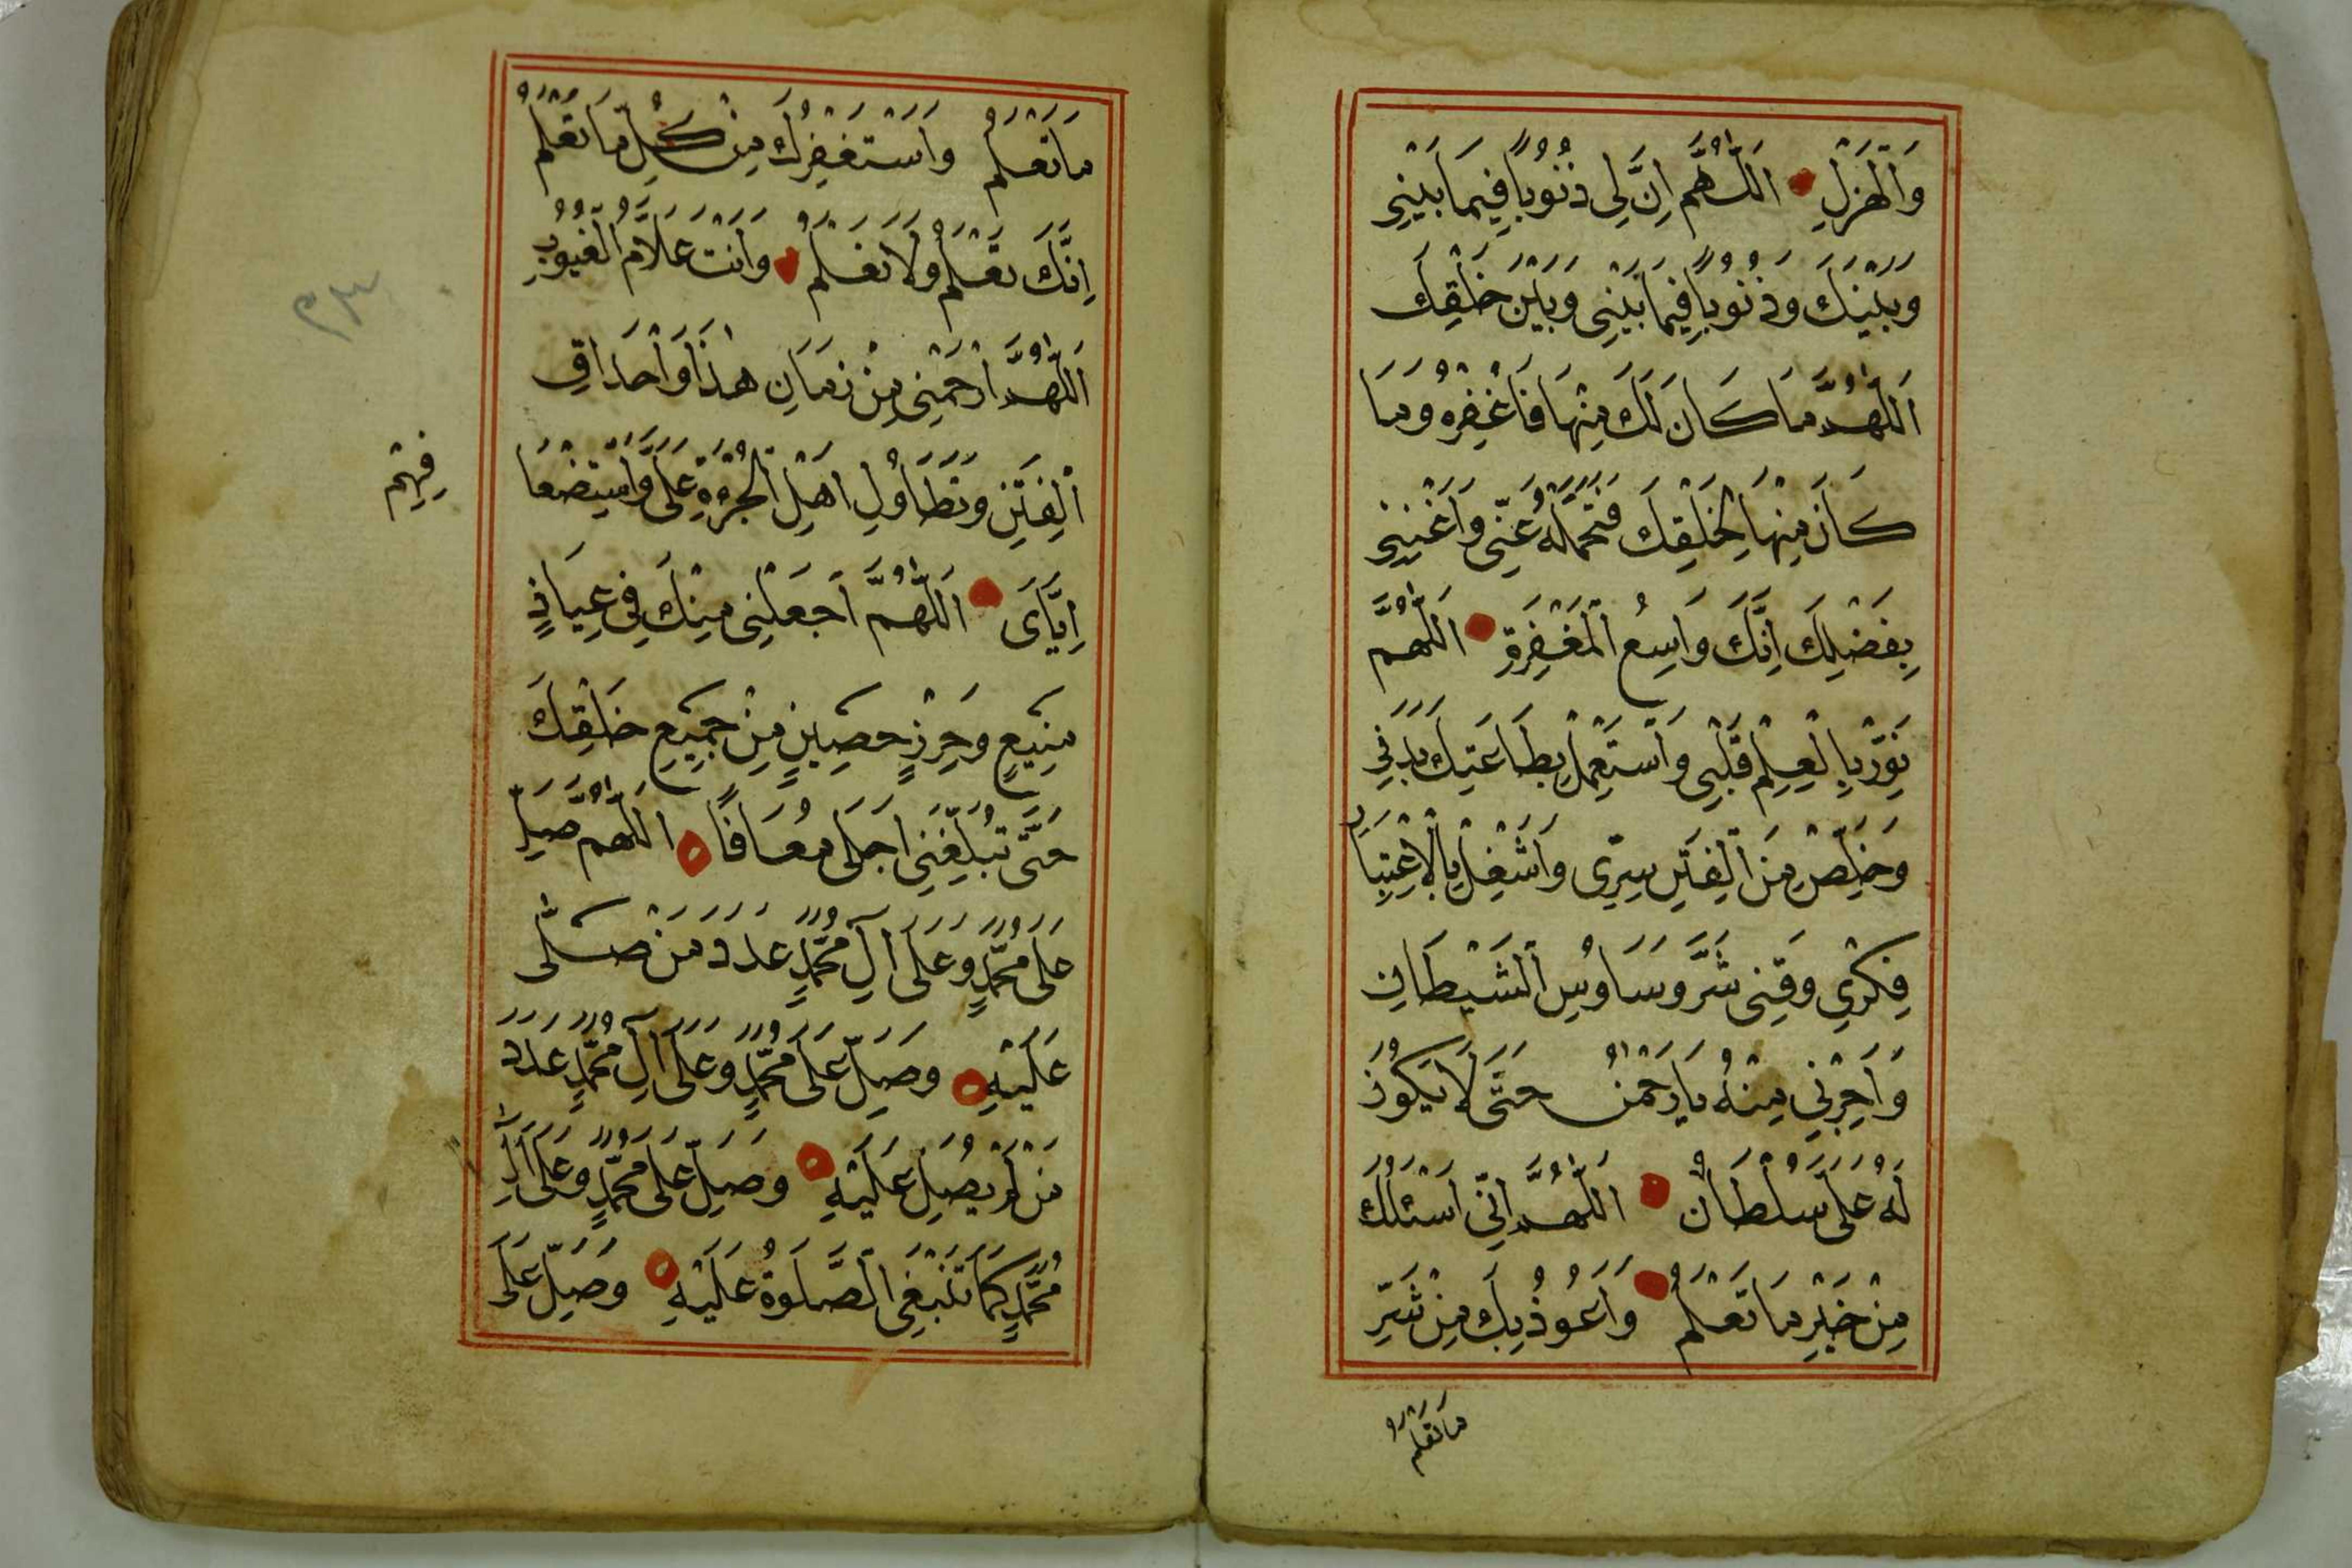 وَالْهَزْلِ اَللّٰهُمَّ اِنَّ لِى ذُنُوبًا فِيمَا بَيْنِى
وَبَيْنَكَ وَذُنُوبًا فِيمَا بَيْنِى وَبَيْنَ خَلْقِكَ
اَللّٰهُمَّ مَا كَانَ لَكَ مِنْهَا فَاغْفِرْهُ وَمَا
كَانَ مِنْهَا لِخَلْقِكَ فَتَحَمَّلْهُ عَنِّى وَاَغْنِنِى
بِفَضْلِكَ اِنَّكَ وَاسِعُ الْمَغْفِرَةِ اَللّٰهُمَّ
نَوِّرْ بِالْعِلْمِ قَلْبِى وَاسْتَعْمِلْ بِطَاعَتِكَ بَدَنِى
وَخَلِّصْ مِنَ الْفِتَنِ سِرِّى وَاشْغِلْ بِالْاِعْتِبَارِ
فِكْرِي وَقِنِى شَرَّ وَسَاوِسِ الشَّيْطَانِ
وَاَجِرْنِي مِنْهُ يَارَحْمٰنُ حَتَّى لَا يَكُونَ
لَهُ عَلَىَّ سُلْطَانٌ اَللّٰهُمَّ اِنِّى اَسْئَلُكَ
مِنْ خَيْرِ مَا تَعْلَمُ وَاَعُوذُ بِكَ مِنْ شَرِّ
مَا تَعْلَمُ
مَا تَعْلَمُ وَاَسْتَغْفِرُكَ مِنْ كُلِّ مَا تَعْلَمُ
اِنَّكَ تَعْلَمُ وَلَا نَعْلَمُ وَاَنْتَ عَلَّامُ الْغُيُوبِ
اَللّٰهُمَّ ارْحَمْنِى مِنْ زَمَانِ هٰذَا وَاَحْدَاقِ
الْفِتَنِ وَتَطَاوُلِ اَهْلِ الْجُرْءَةِ عَلَىَّ وَاسْتِضْعَا
فِهِمْ
اِيَّاىَ اَللّٰهُمَّ اجْعَلْنِى مِنْكَ فِى عِيَاذٍ
مَنِيعٍ وَحِرْزٍ حَصِينٍ مِنْ جَمِيعِ خَلْقِكَ
حَتَّى تُبَلِّغَنِى اَجَلِى مُعَافًا اَللّٰهُمَّ صَلِّ
عَلَى مُحَمَّدٍ وَعَلَى آلِ مُحَمَّدٍ عَدَدَ مَنْ صَلّٰى
عَلَيْهِ وَصَلِّ عَلَى مُحَمَّدٍ وَعَلَى آلِ مُحَمَّدٍ عَدَدَ
مَنْ لَمْ يُصَلِّ عَلَيْهِ وَصَلِّ عَلَى مُحَمَّدٍ وَعَلَى آلِ
مُحَمَّدٍ كَمَا تَنْبَغِى الصَّلَوةُ عَلَيْهِ وَصَلِّ عَلَى